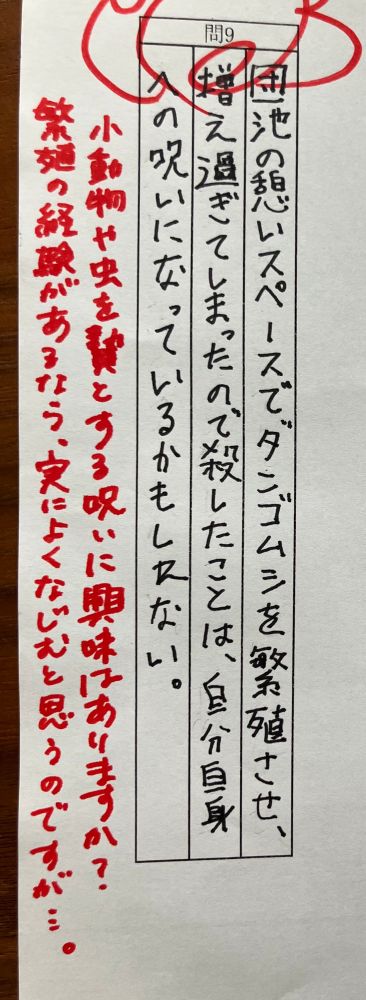 問9
団池の憩いスペースでダンゴムシを繁殖させ、
増え過ぎてしまったので殺したことは、自分自身
への呪いになっているかもしれない。
小動物や虫を贄とする呪いに興味はありますか?
繁殖の経験があるなら、実によくなじむと思うのですが…。